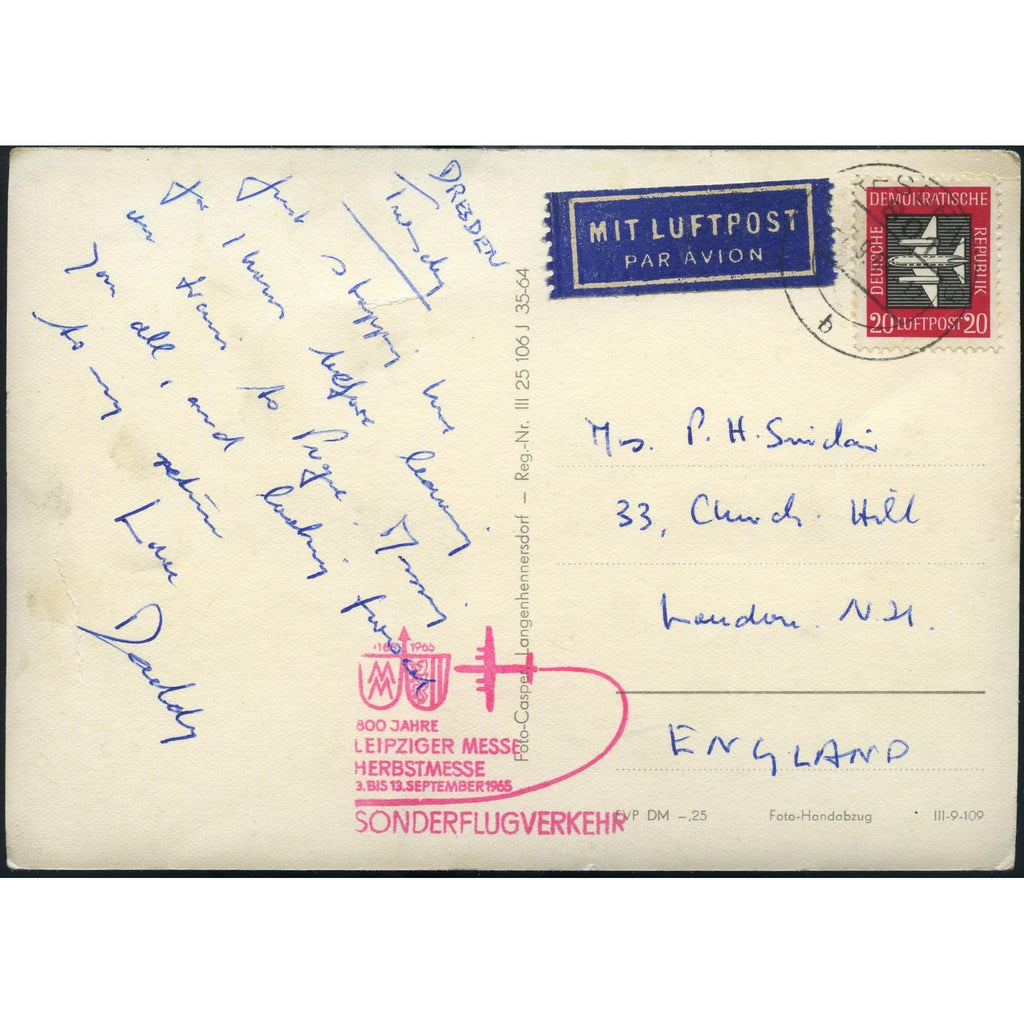 DRESDEN
Tuesday
Just stopping here
for 1 hour before leaving
on train to Prague. Missing
you all & and looking forward
to my return
Love
Daddy
MIT LUFTPOST
PAR AVION
DEMOKRATISCHE
DEUTSCHE
REPUBLIK
20 LUFTPOST 20
b
Mrs. P. H. Sinclair
33, Church Hill
London. N.21.
ENGLAND
Foto-Casper, Langenhennersdorf – Reg.-Nr. III 25 106 J 35-64
1965
MM
800 JAHRE
LEIPZIGER MESSE
HERBSTMESSE
3. BIS 13. SEPTEMBER 1965
SONDERFLUGVERKEHR
EVP DM –,25 Foto-Handabzug III-9-109